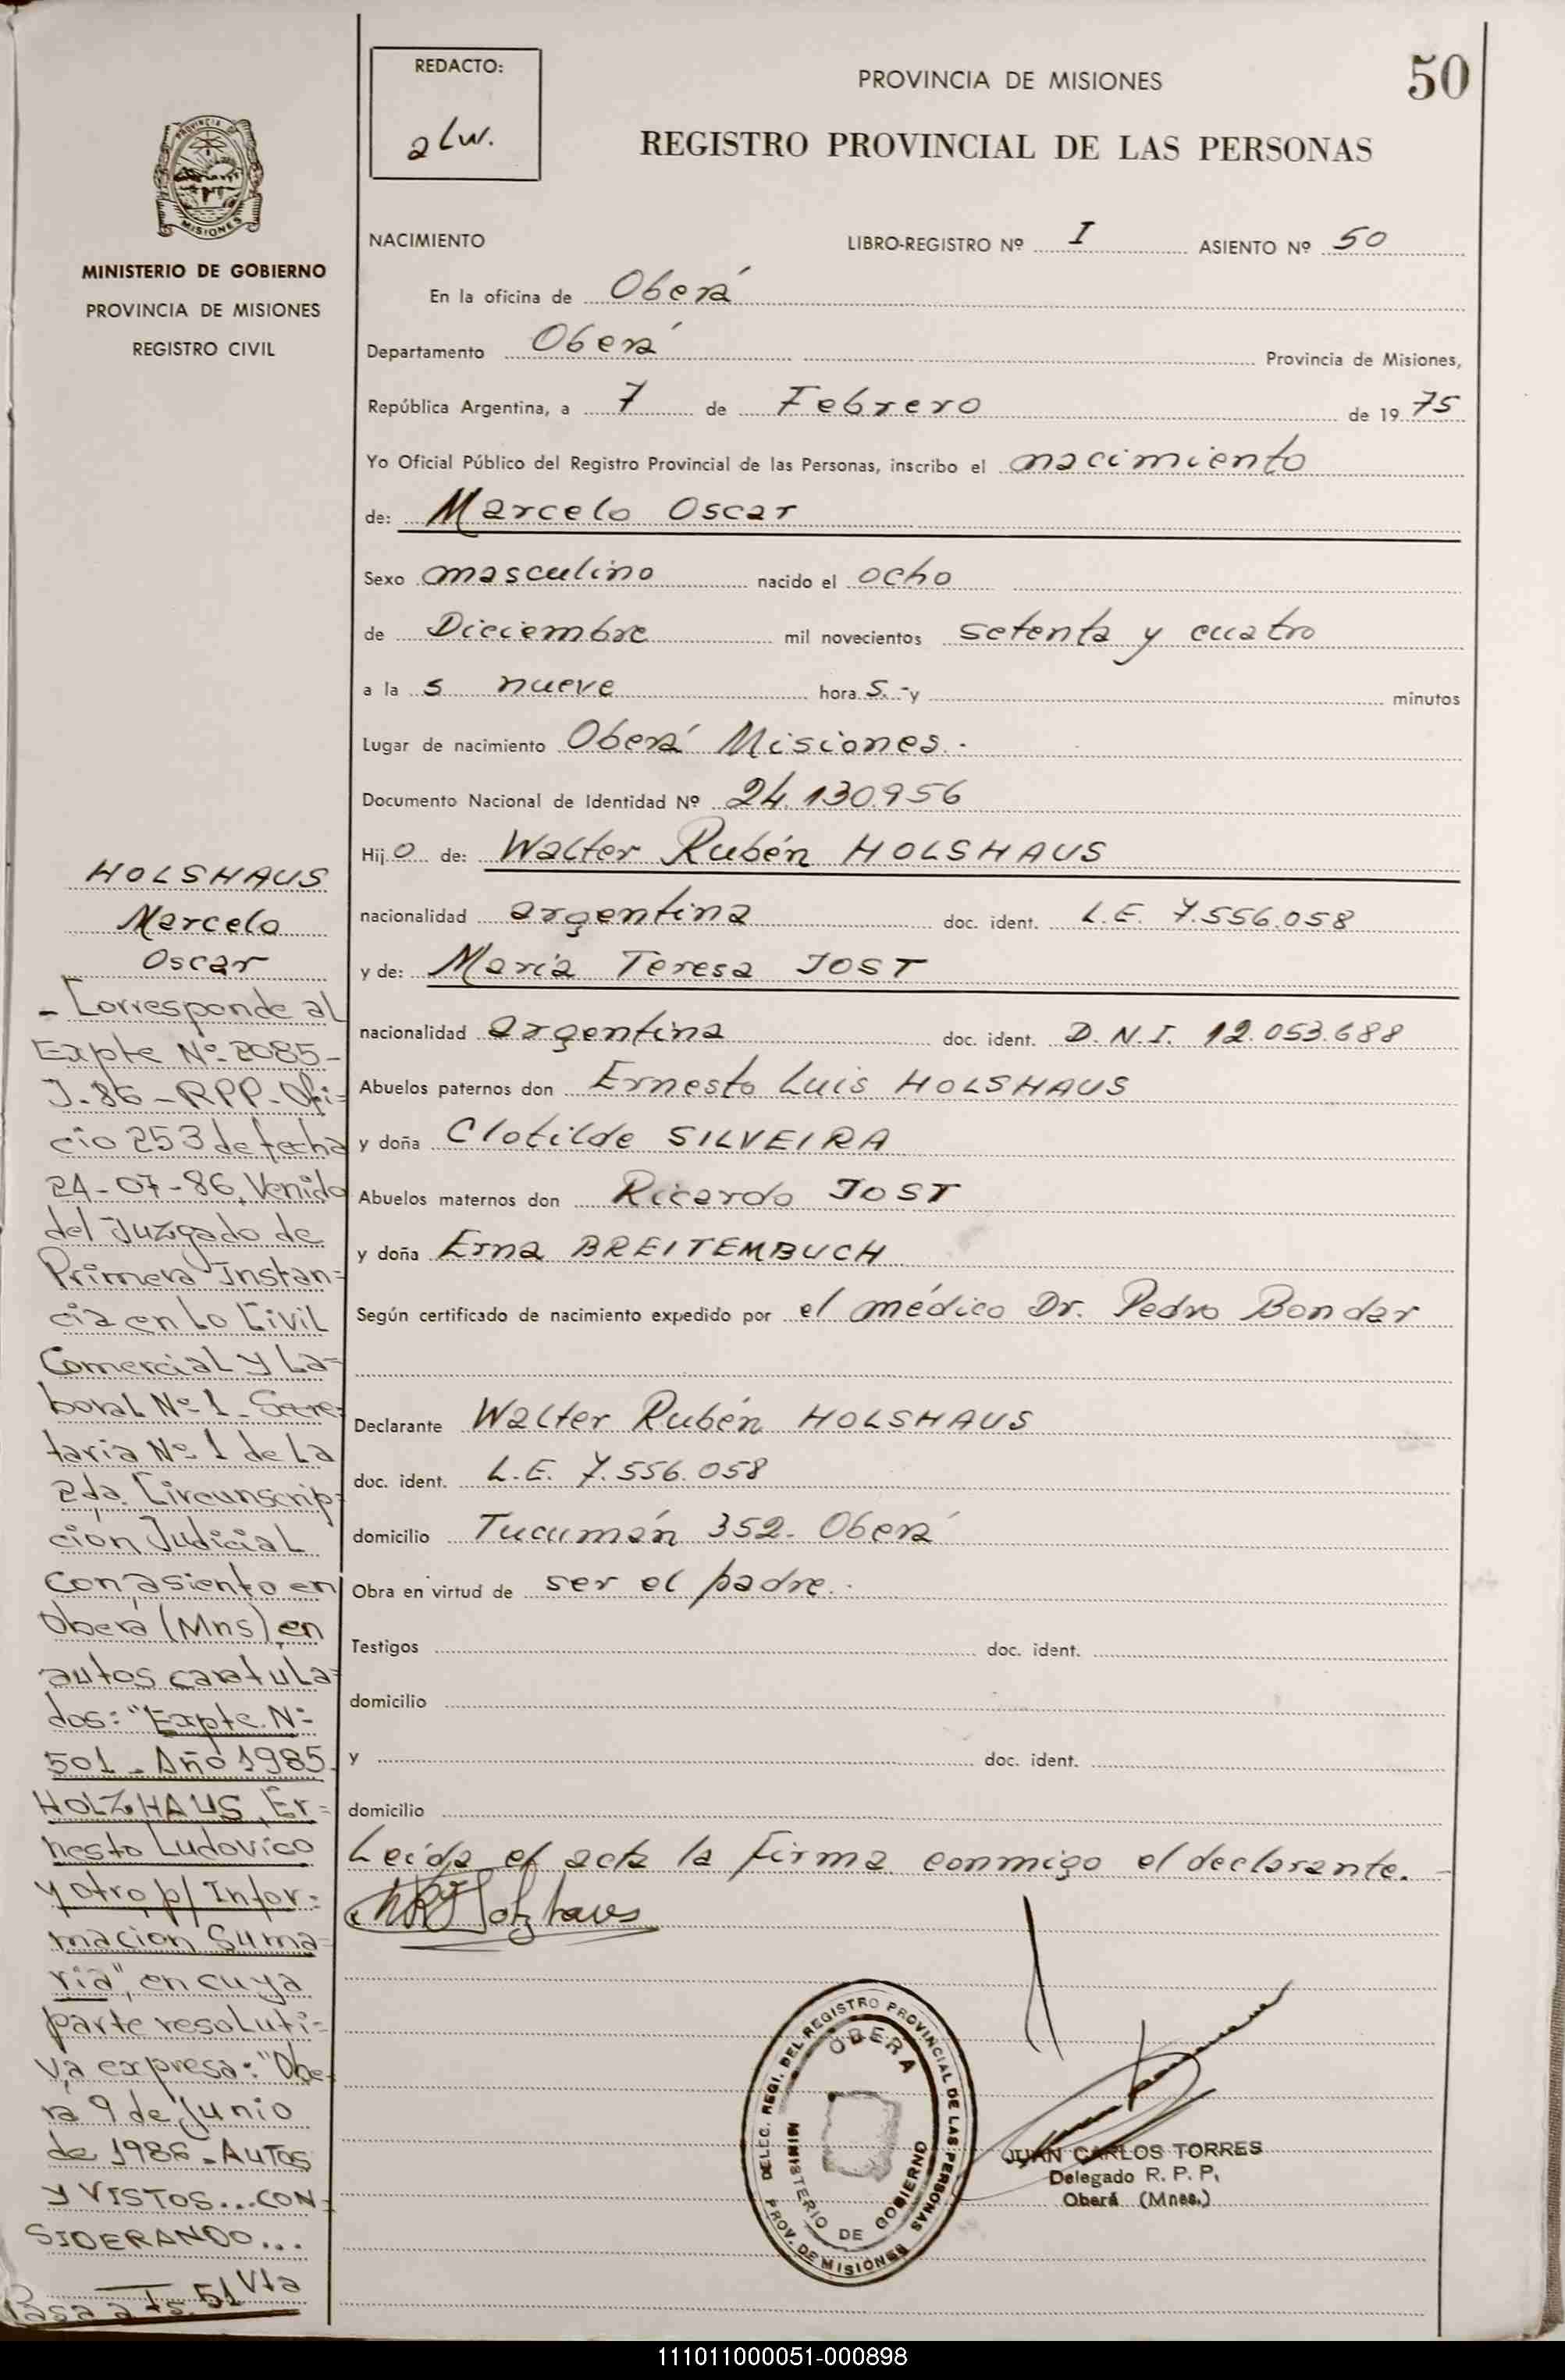 REDACTO:
alw.
PROVINCIA DE MISIONES
50
REGISTRO PROVINCIAL DE LAS PERSONAS
PROVINCIA DE
MISIONES
MINISTERIO DE GOBIERNO
PROVINCIA DE MISIONES
REGISTRO CIVIL
NACIMIENTO LIBRO-REGISTRO Nº I ASIENTO Nº 50
En la oficina de Oberá
Departamento Oberá Provincia de Misiones,
República Argentina, a 7 de Febrero de 19 75
Yo Oficial Público del Registro Provincial de las Personas, inscribo el nacimiento
de: Marcelo Oscar
Sexo masculino nacido el ocho
de Dieciembre mil novecientos setenta y cuatro
a la s nueve hora s.- y minutos
Lugar de nacimiento Oberá Misiones.-
Documento Nacional de Identidad Nº 24.130.956
Hij o de: Walter Rubén HOLSHAUS
nacionalidad argentina doc. ident. L.E. 7.556.058
y de: María Teresa JOST
nacionalidad argentina doc. ident. D.N.I. 12.053.688
Abuelos paternos don Ernesto Luis HOLSHAUS
y doña Clotilde SILVEIRA
Abuelos maternos don Ricardo JOST
y doña Erna BREITEMBUCH
Según certificado de nacimiento expedido por el médico Dr. Pedro Bondar
Declarante Walter Rubén HOLSHAUS
doc. ident. L.E. 7.556.058
domicilio Tucumán 352- Oberá
Obra en virtud de ser el padre.-
Testigos doc. ident.
domicilio
y doc. ident.
domicilio
Leída el acta la firma conmigo el declarante.-
WR Holzhaus
HOLSHAUS
Marcelo
Oscar
- Corresponde al
Expte Nº 2085-
J-86-RPP-Ofi=
cio 253 de fecha
24-07-86, Venido
del Juzgado de
Primera Instan=
cia en Lo Civil
Comercial y La=
boral Nº 1- Secre=
taria Nº 1 de La
2da. Circunscrip=
ción Judicial
con asiento en
Oberá (Mns) en
autos caratula=
dos: "Expte. Nº
501- Año 1985
HOLZHAUS, Er=
nesto Ludovico
y otro p/ Infor=
macion Suma=
ria", en cuya
parte resoluti=
va expresa: "Obe=
rá 9 de Junio
de 1986-AUTOS
y VISTOS...CON=
SIDERANDO...
Pasa a Fs. 51 Vta
DELEC. REGI. DEL REGISTRO PROVINCIAL DE LAS PERSONAS
OBERA
MINISTERIO DE GOBIERNO
PROV. DE MISIONES
JUAN CARLOS TORRES
Delegado R. P. P.
Oberá (Mnes.)
111011000051-000898